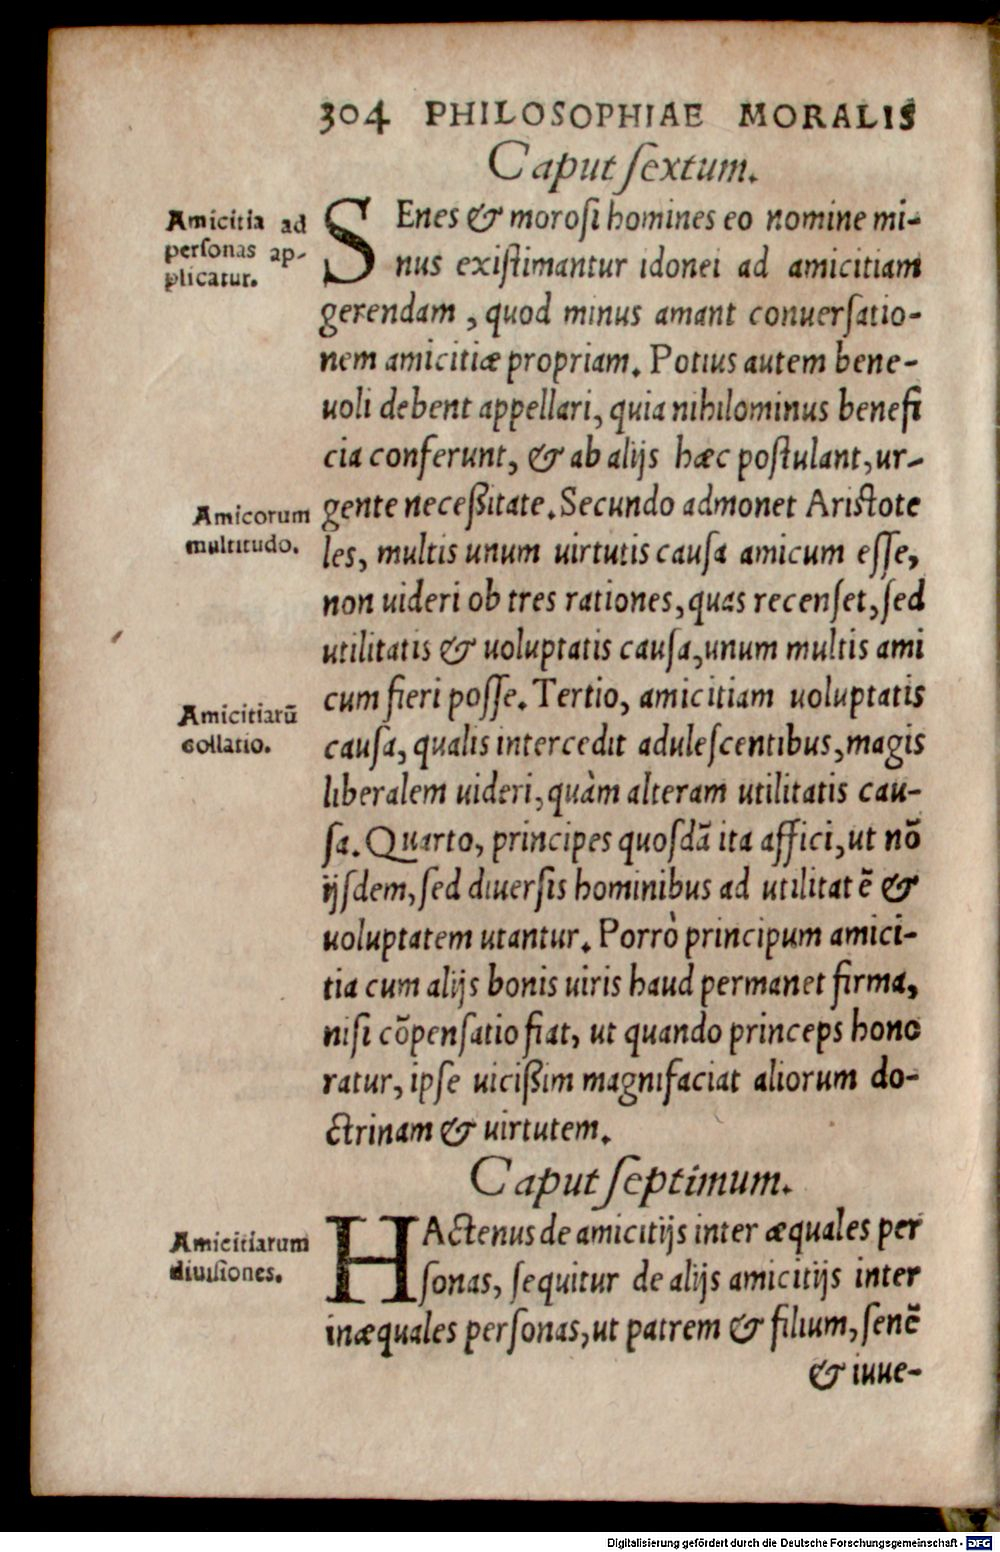 304 PHILOSOPHIAE MORALIS
Caput ſextum.
Amicitia ad
perſonas ap-
plicatur.
SEnes & moroſi homines eo nomine mi-
nus exiſtimantur idonei ad amicitiam
gerendam, quod minus amant conuerſatio-
nem amicitiæ propriam. Potius autem bene-
uoli debent appellari, quia nihilominus benefi
cia conferunt, & ab alijs hæc poſtulant, ur-
Amicorum
multitudo.
gente neceßitate. Secundo admonet Ariſtote
les, multis unum uirtutis cauſa amicum eſſe,
non uideri ob tres rationes, quas recenſet, ſed
utilitatis & uoluptatis cauſa, unum multis ami
cum fieri poſſe. Tertio, amicitiam uoluptatis
Amicitiarū
collatio.
cauſa, qualis intercedit aduleſcentibus, magis
liberalem uideri, quàm alteram utilitatis cau-
ſa. Quarto, principes quoſdā ita affici, ut nō
ijſdem, ſed diuerſis hominibus ad utilitatē &
uoluptatem utantur. Porrò principum amici-
tia cum alijs bonis uiris haud permanet firma,
niſi cōpenſatio fiat, ut quando princeps hono
ratur, ipſe uicißim magnifaciat aliorum do-
ctrinam & uirtutem.
Caput ſeptimum.
Amicitiarum
diuiſiones.
HActenus de amicitijs inter æquales per
ſonas, ſequitur de alijs amicitijs inter
inæquales perſonas, ut patrem & filium, ſenē
& iuue-
Digitalisierung gefördert durch die Deutsche Forschungsgemeinschaft - DFG